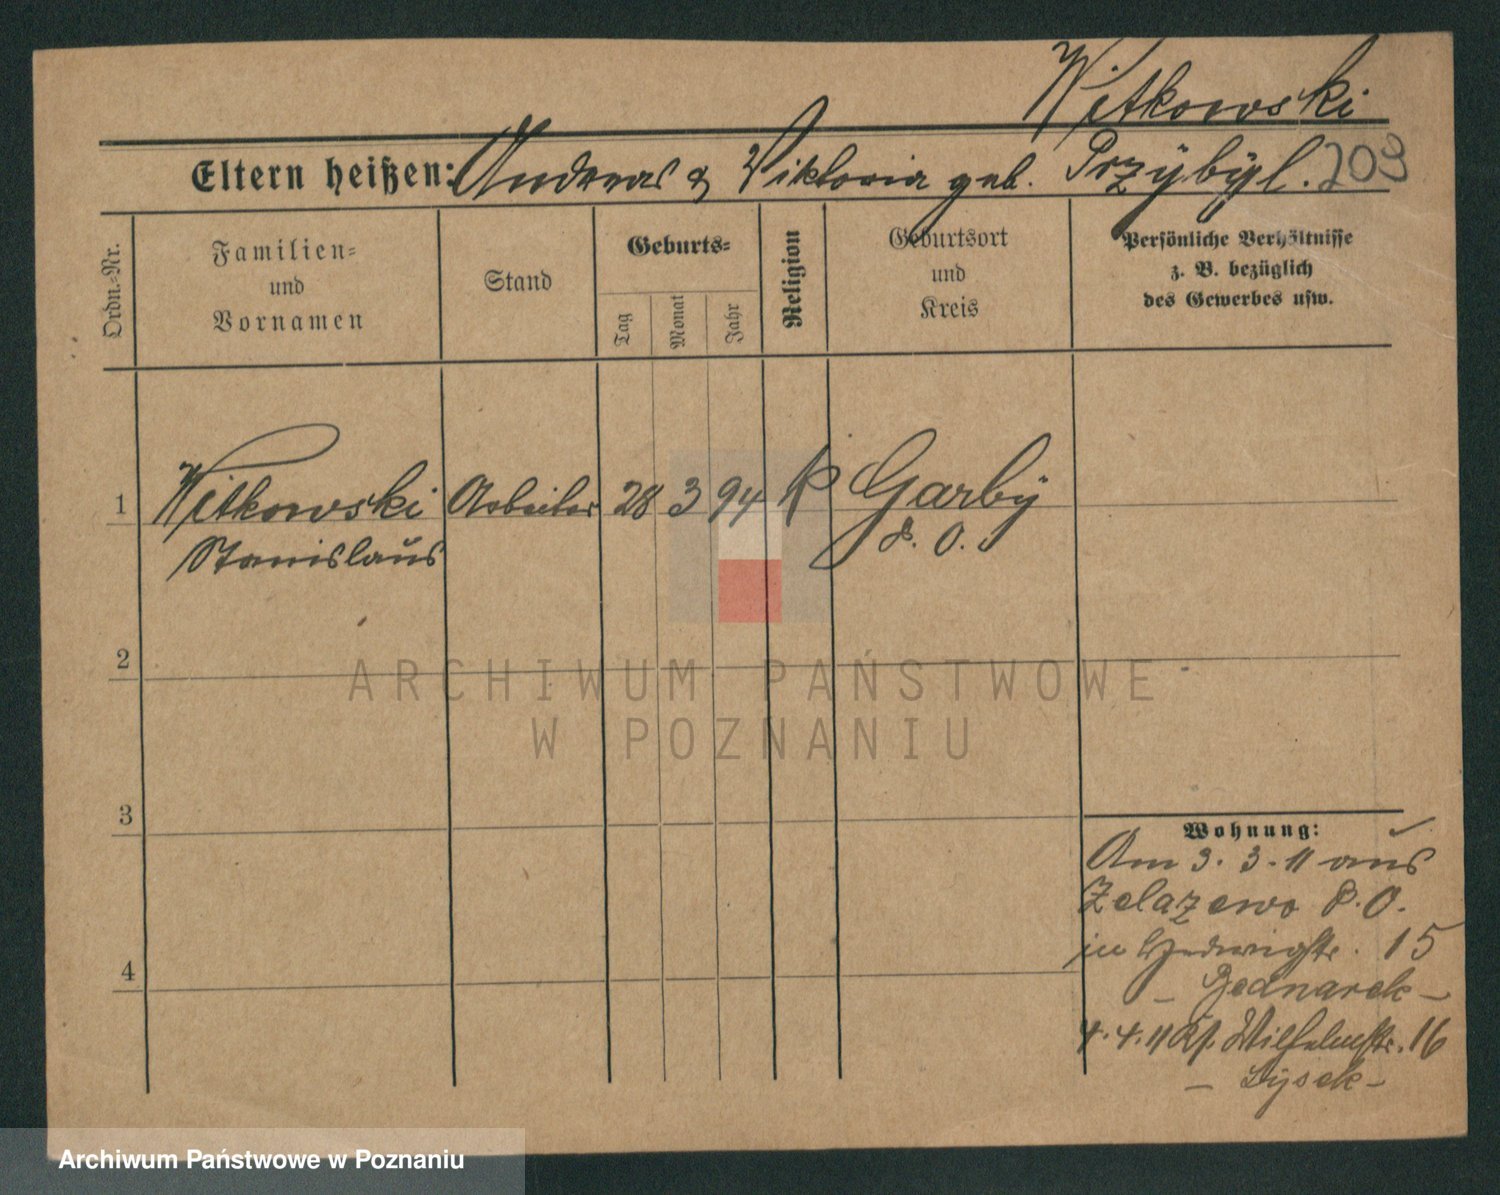 Witkowski
Eltern heißen: Andreas & Viktoria geb. Przybyl. 209
Ordn.-Nr.
Familien-
und
Vornamen
Stand
Geburts-
Tag
Monat
Jahr
Religion
Geburtsort
und
Kreis
Persönliche Verhältnisse
z. B. bezüglich
des Gewerbes usw.
1 Witkowski Arbeiter 28 3 94 K Garby
Stanislaus P. O.
2
ARCHIWUM PAŃSTWOWE
W POZNANIU
3
Wohnung:
Am 3. 3. 11 aus
Zelazewo P. O.
in Hedwigstr. 15
4
– Bednarek –
4. 4. 11 Wilhelmstr. 16
– Lysek –
Archiwum Państwowe w Poznaniu